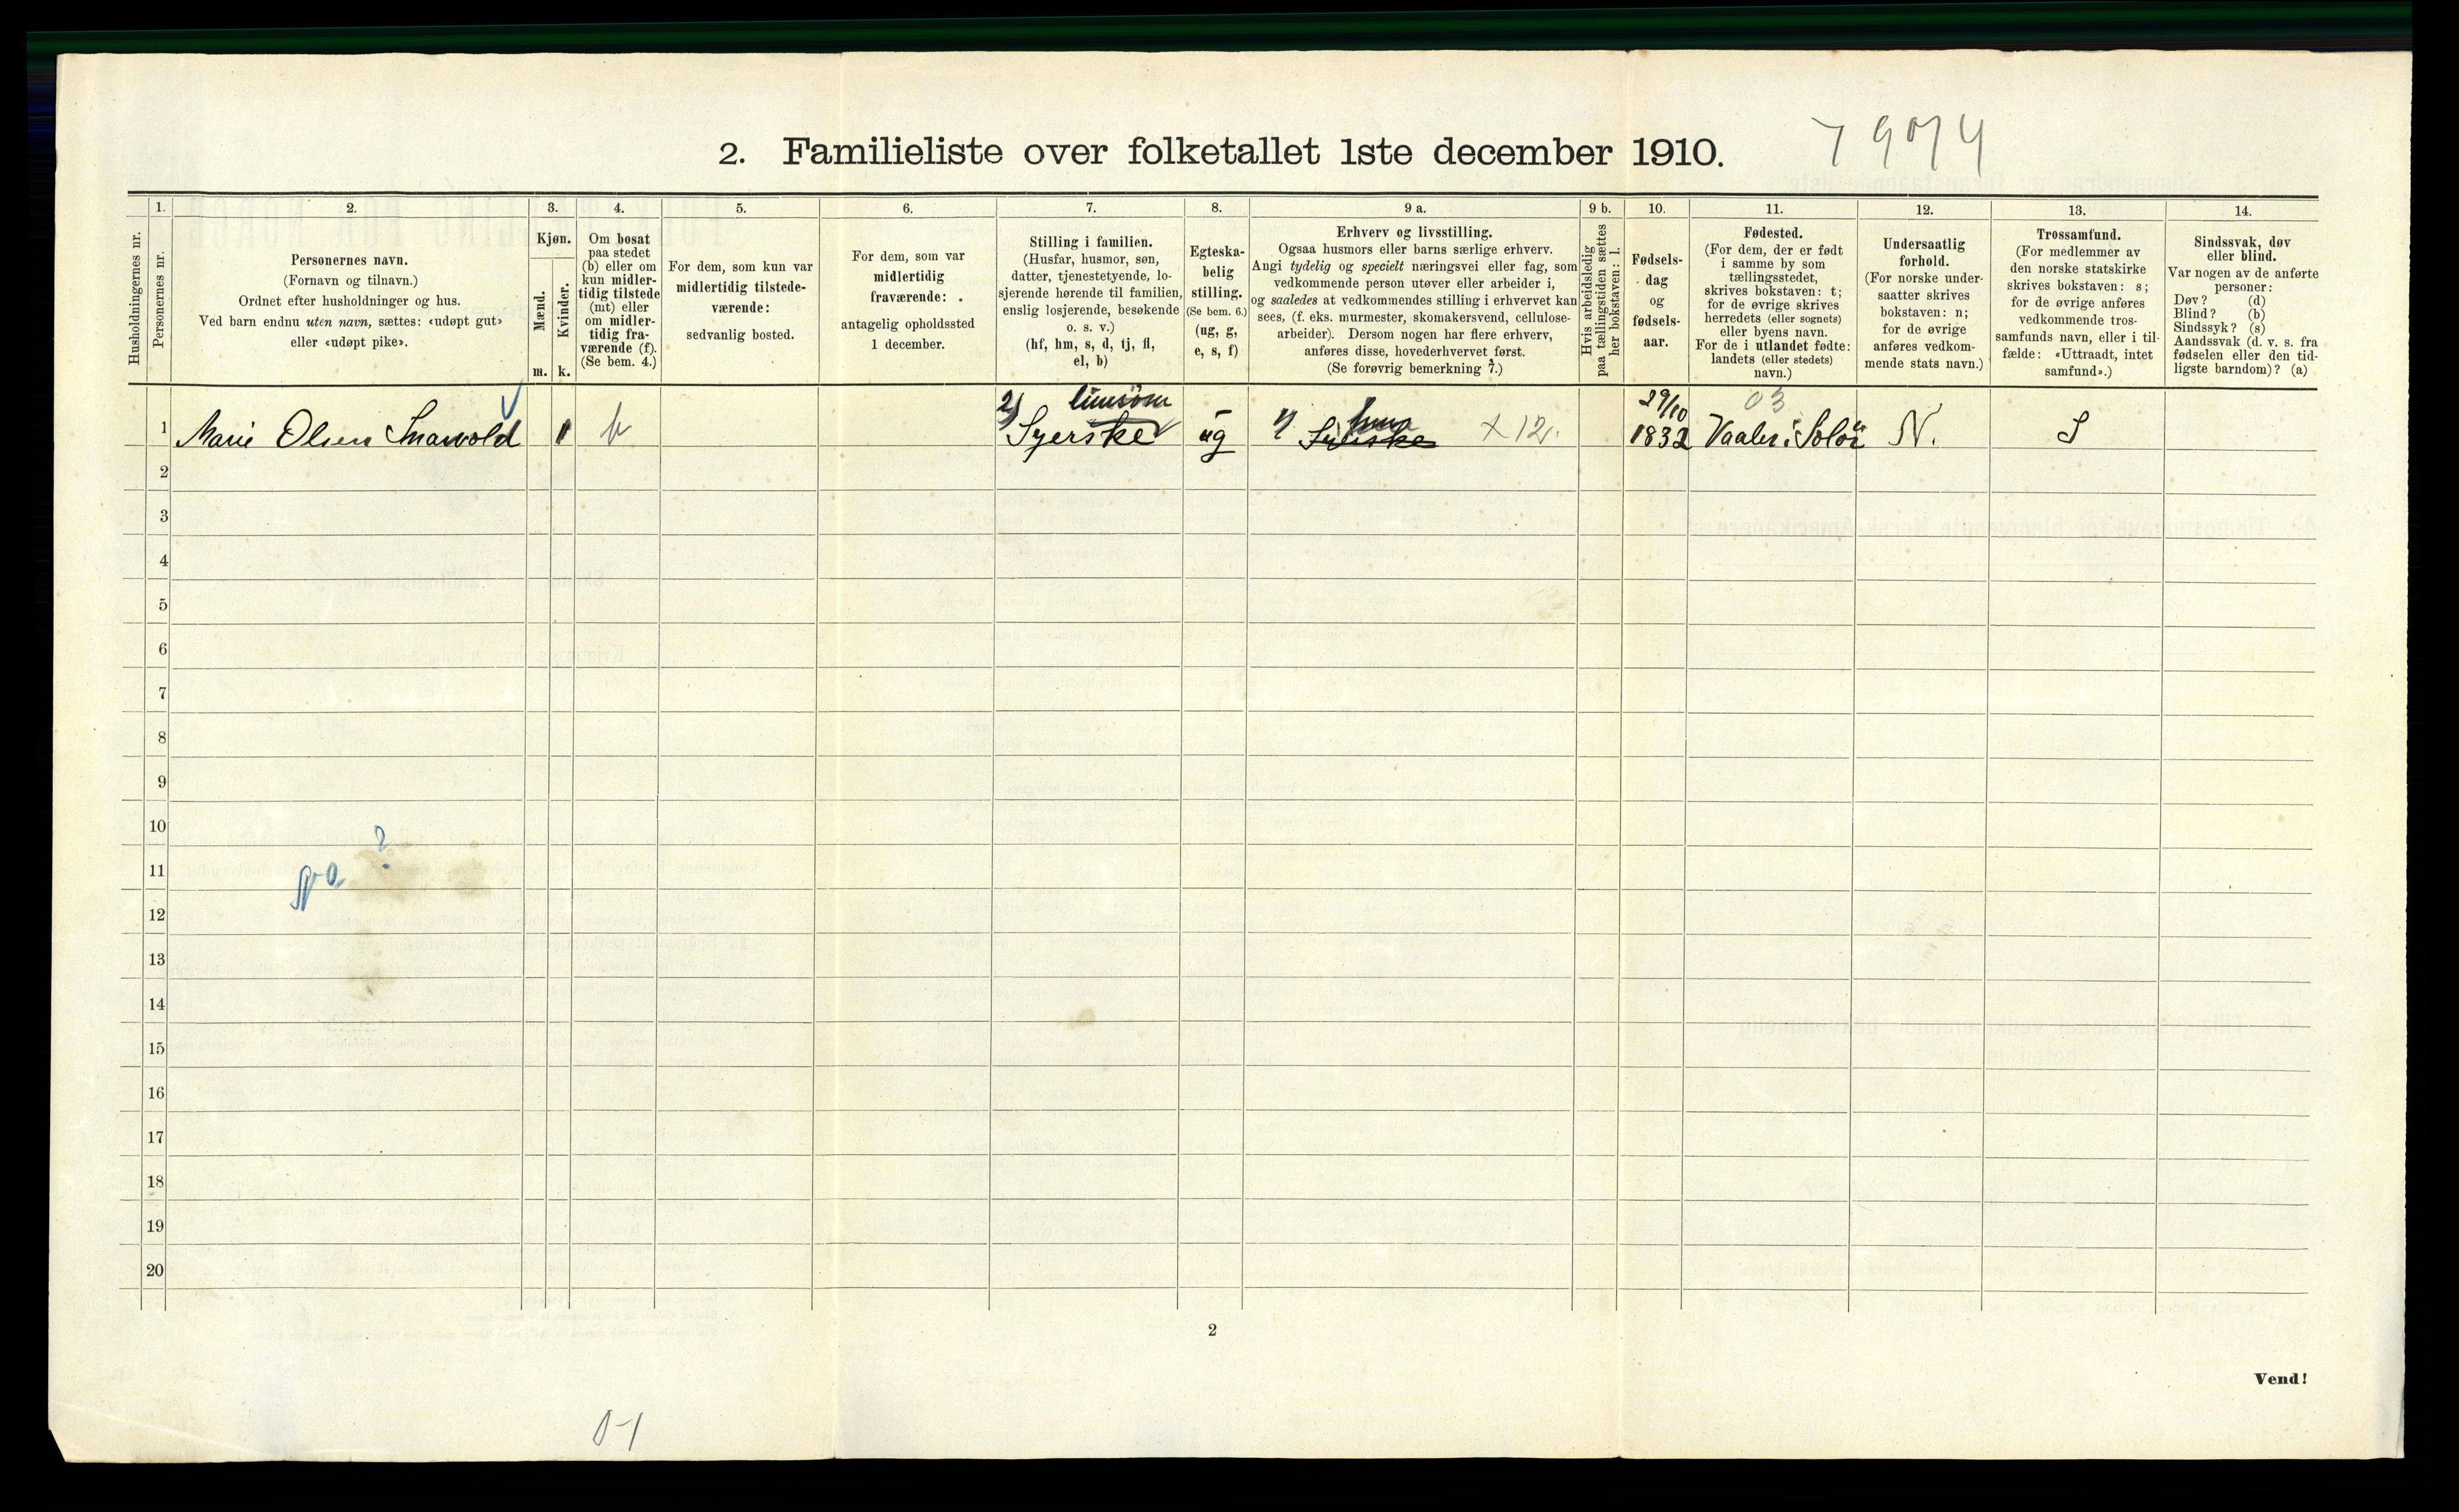 2. Familieliste over folketallet 1ste december 1910.
7974
Husholdningernes nr.
1.
Personernes nr.
2.
Personernes navn.
(Fornavn og tilnavn.)
Ordnet efter husholdninger og hus.
Ved barn endnu uten navn, sættes: «udøpt gut»
eller «udøpt pike».
3.
Kjøn.
Mænd.
Kvinder.
m. k.
4.
Om bosat
paa stedet
(b) eller om
kun midler-
tidig tilstede
(mt) eller
om midler-
tidig fra-
værende (f).
(Se bem. 4.)
5.
For dem, som kun var
midlertidig tilstede-
værende:
sedvanlig bosted.
6.
For dem, som var
midlertidig
fraværende:
antagelig opholdssted
1 december.
7.
Stilling i familien.
(Husfar, husmor, søn,
datter, tjenestetyende, lo-
sjerende hørende til familien,
enslig losjerende, besøkende
o. s. v.)
(hf, hm, s, d, tj, fl,
el, b)
8.
Egteska-
belig
stilling.
(Se bem. 6.)
(ug, g,
e, s, f)
9 a.
Erhverv og livsstilling.
Ogsaa husmors eller barns særlige erhverv.
Angi tydelig og specielt næringsvei eller fag, som
vedkommende person utøver eller arbeider i,
og saaledes at vedkommendes stilling i erhvervet kan
sees, (f. eks. murmester, skomakersvend, cellulose-
arbeider). Dersom nogen har flere erhverv,
anføres disse, hovederhvervet først.
(Se forøvrig bemerkning 7.)
9 b.
Hvis arbeidsledig
paa tællingstiden sættes
her bokstaven: l.
10.
Fødsels-
dag
og
fødsels-
aar.
11.
Fødested.
(For dem, der er født
i samme by som
tællingsstedet,
skrives bokstaven: t;
for de øvrige skrives
herredets (eller sognets)
eller byens navn.
For de i utlandet fødte:
landets (eller stedets)
navn.)
12.
Undersaatlig
forhold.
(For norske under-
saatter skrives
bokstaven: n;
for de øvrige
anføres vedkom-
mende stats navn.)
13.
Trossamfund.
(For medlemmer av
den norske statskirke
skrives bokstaven: s;
for de øvrige anføres
vedkommende tros-
samfunds navn, eller i til-
fælde: «Uttraadt, intet
samfund».)
14.
Sindssvak, døv
eller blind.
Var nogen av de anførte
personer:
Døv? (d)
Blind? (b)
Sindssyk? (s)
Aandssvak (d. v. s. fra
fødselen eller den tid-
ligste barndom)? (a)
2) linsöm 29/10 03
1 Marie Olsen Snarvold 1 b Syerske ug Syerske x12. 1832 Vaaler i Solör N. S
2
3
4
5
6
7
8
9
10
?
11
12
13
14
15
16
17
18
19
20
2
Vend!
0-1